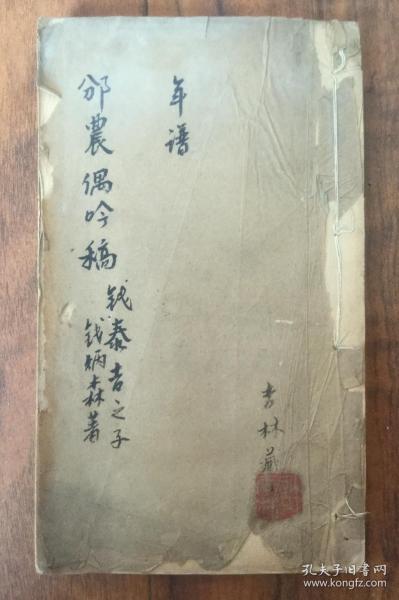 年谱
邠農偶吟稿
钱泰吉之子
钱炳森著
林藏
孔夫子旧书网
www.kongfz.com